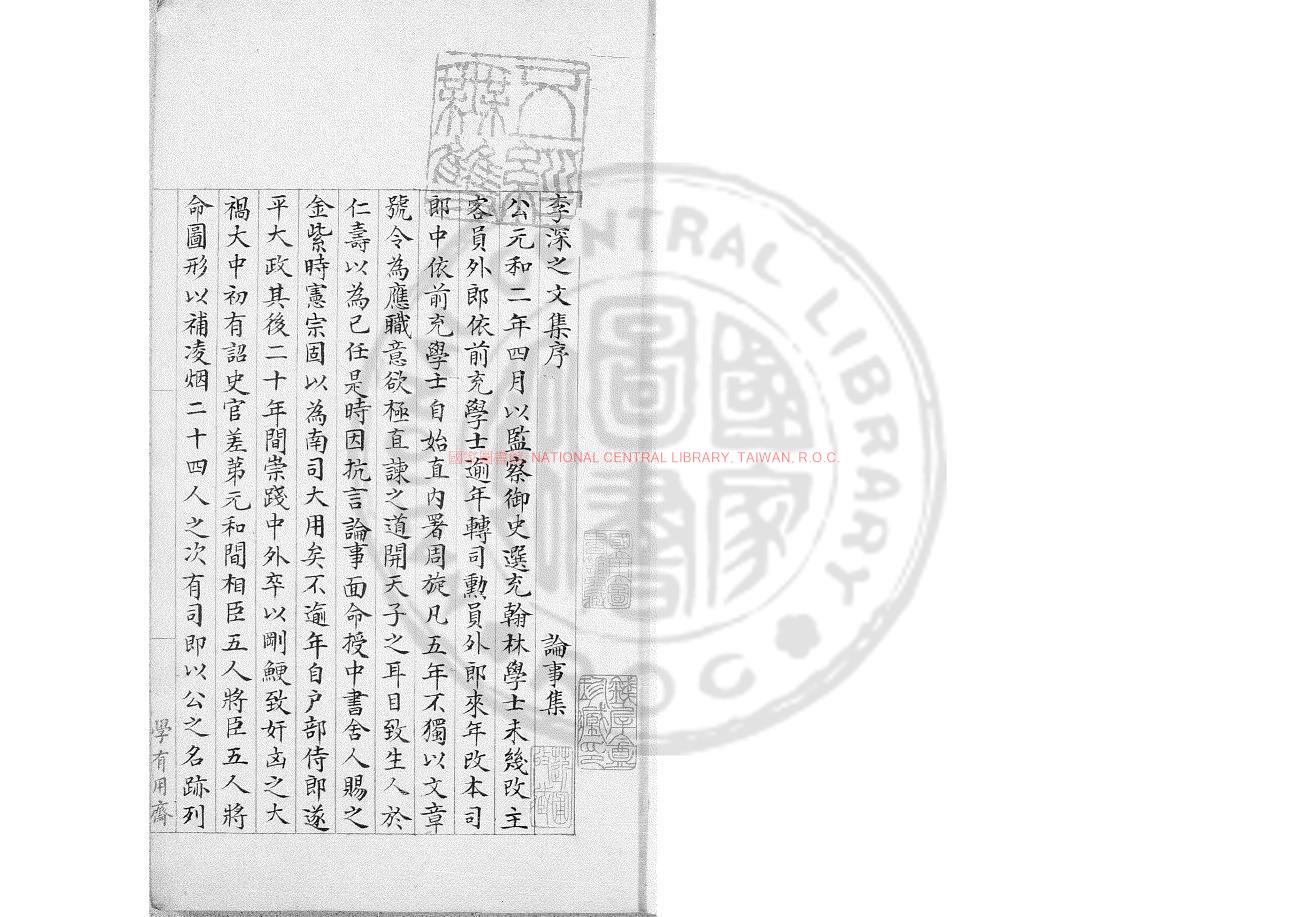 李深之文集序　論事集
公元和二年四月以監察御史選充翰林學士未幾改主
客員外郎依前充學士逾年轉司勲員外郎來年改本司
郎中依前充學士自始直內署周旋凡五年不獨以文章
號令為應職意欲極直諫之道開天子之耳目致生人於
仁壽以為己任是時因抗言論事面命授中書舍人賜之
金紫時憲宗固以為南司大用矣不逾年自户部侍郎遂
平大政其後二十年間崇踐中外卒以剛鯁致奸凶之大
禍大中初有詔史官差第元和間相臣五人將臣五人將
命圖形以補凌烟二十四人之次有司即以公之名跡列
學有用齋
國家圖書館 NATIONAL CENTRAL LIBRARY, TAIWAN, R.O.C.
國家圖書館
NATIONAL CENTRAL LIBRARY
ROC